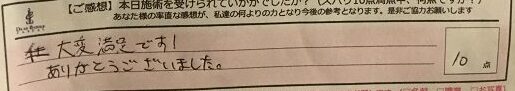 【ご感想】本日施術を受けられていかがでしたか？（ズバリ10点満点中、何点ですか？）
あなた様の率直な感想が、私達の何よりの力となり今後の参考となります。是非ご協力お願いします
大変満足です！
ありがとうございました。
10 点